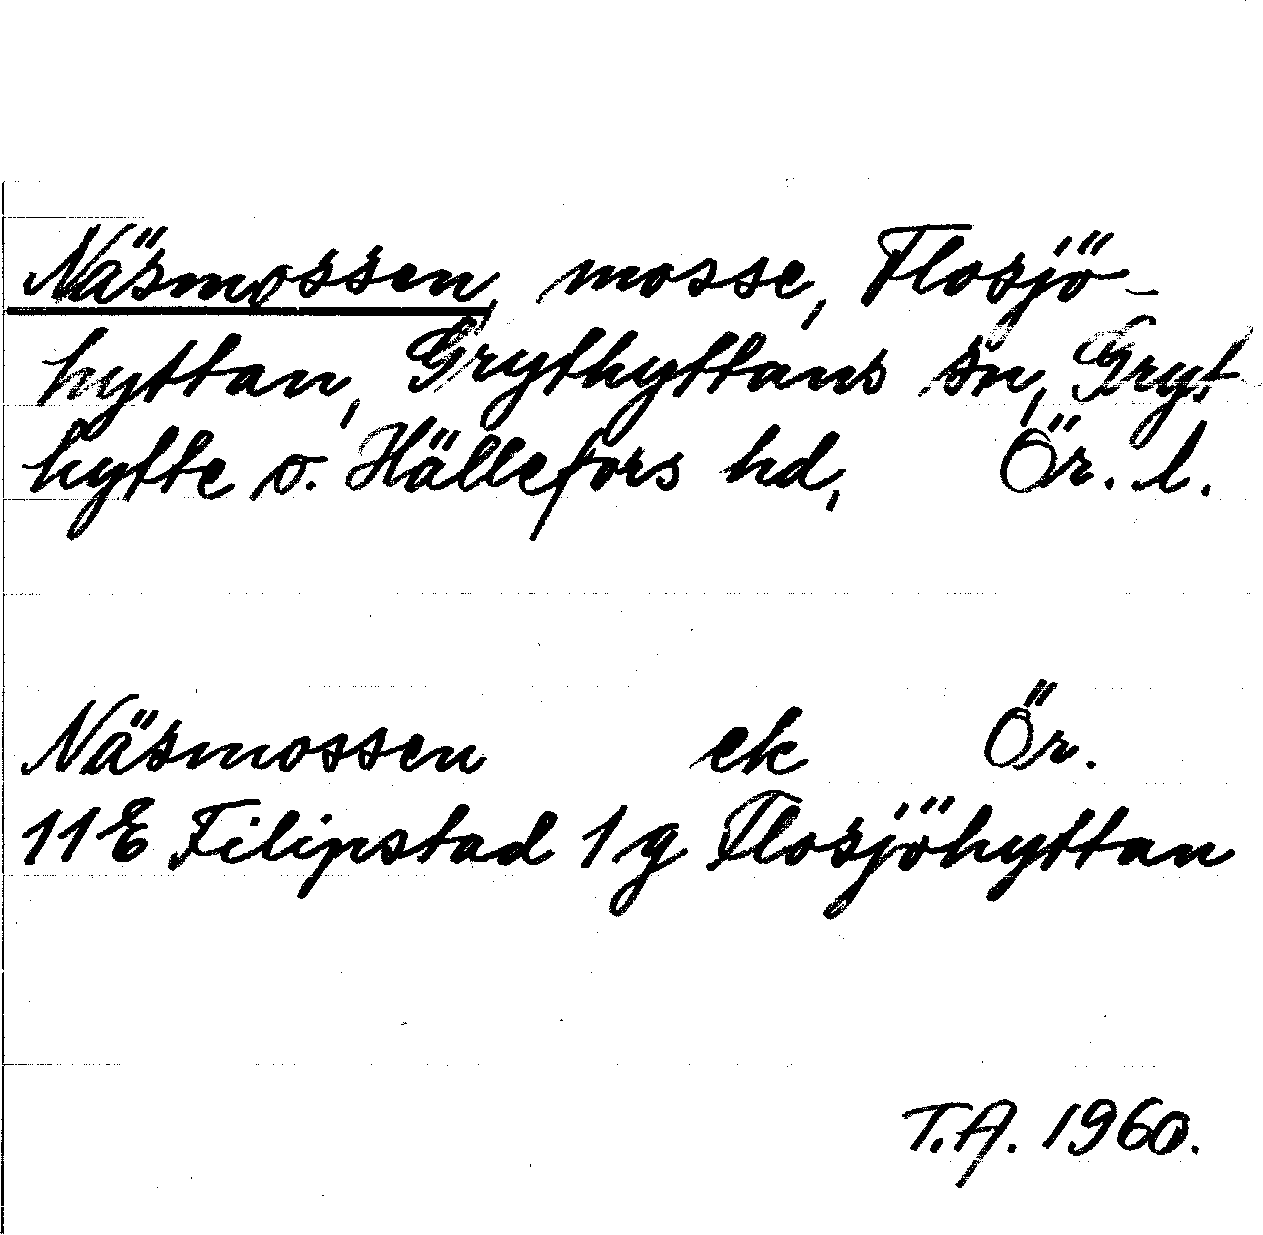 Näsmossen, mosse, Flosjö-
hyttan, Grythyttans sn, Gryt
hytte o. Hällefors hd, Ör. l.
Näsmossen ek Ör.
11E Filipstad 1g Flosjöhyttan
T.A. 1960.